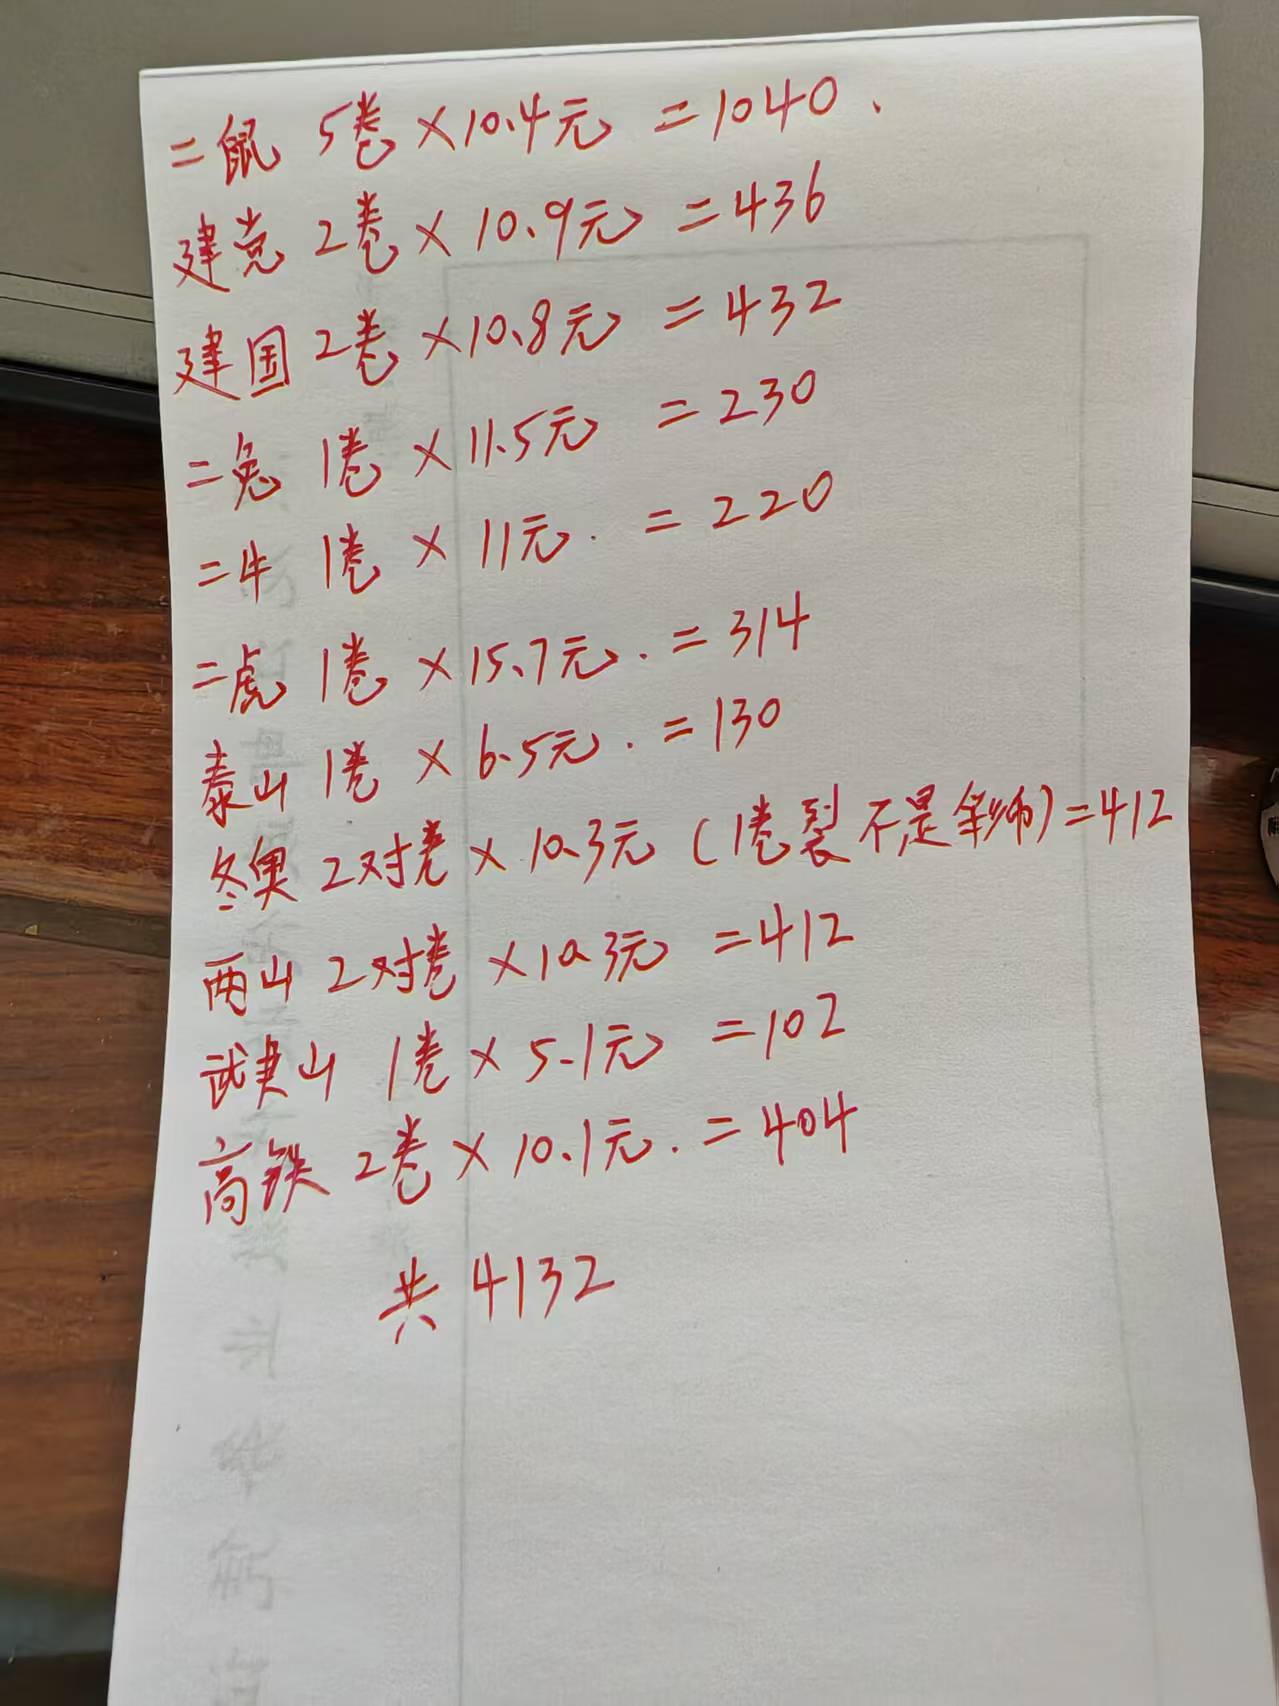 二鼠 5卷×10.4元 =1040.
建党 2卷×10.9元 =436
建国 2卷×10.8元 =432
二兔 1卷×11.5元 =230
二牛 1卷×11元. =220
二虎 1卷×15.7元. =314
泰山 1卷×6.5元. =130
冬奥 2对卷×10.3元 (1卷裂不是彩币)=412
两山 2对卷×10.3元 =412
武夷山 1卷×5.1元 =102
高铁 2卷×10.1元. =404
共 4132